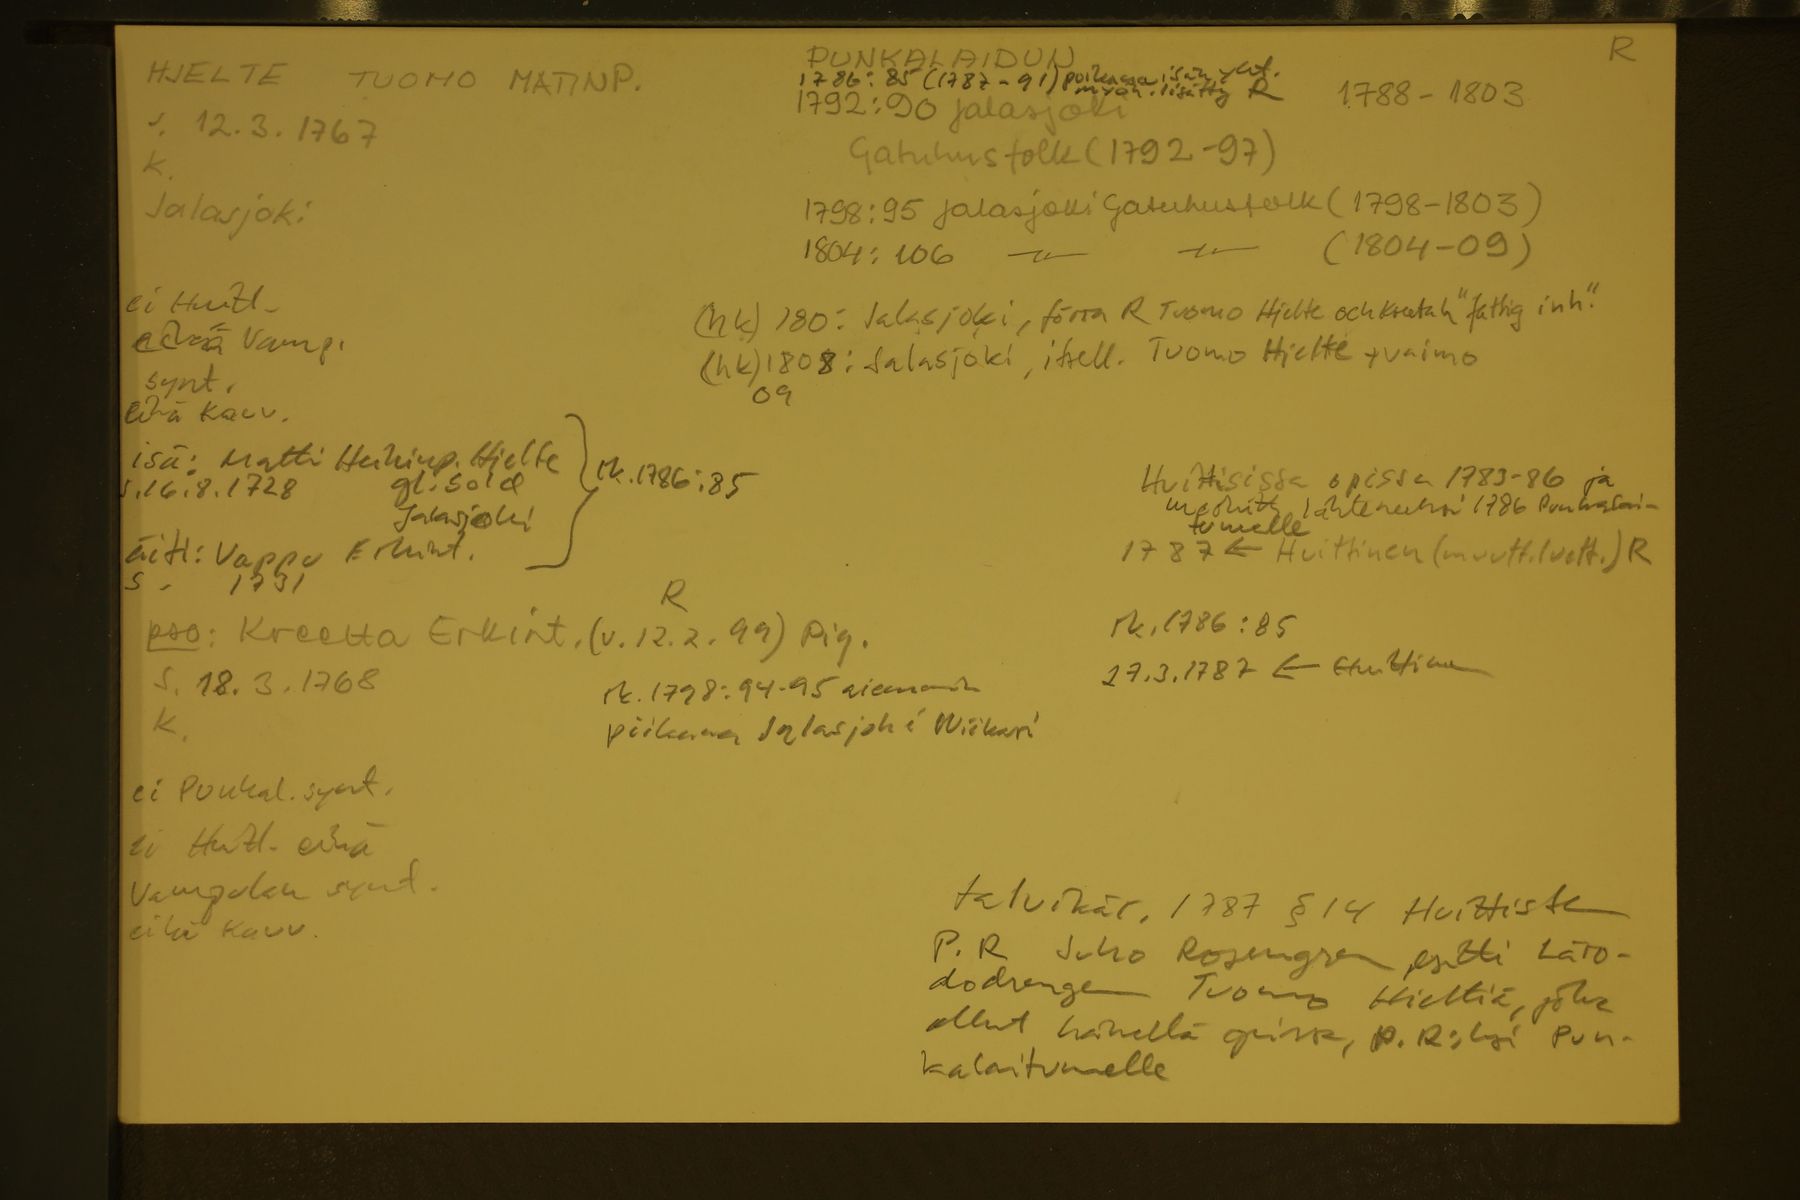 R
HJELTE TUOMO MATINP.
s. 12.3.1767
k.
Jalasjoki
PUNKALAIDUN
1786:85 (1787-91) poikansa isän yht.
myöh. lisätty R
1788-1803
1792:90 Jalasjoki
Gatuhusfolk (1792-97)
1798:95 Jalasjoki Gatuhusfolk (1798-1803)
1804:106 -"- -"- (1804-09)
(hk) 180: Jalasjoki, förra R Tuomo Hjelte och Kreetah "fattig inh."
(hk) 1808: Jalasjoki, itsell. Tuomo Hjelte + vaimo
09
ei Huitt.
eikä Vamp.
synt.
eikä Kauv.
isä: Matti Heikinp. Hjelte
s. 16.8.1728 gl. Sold
Jalasjoki
äiti: Vappu Erkint.
s. 1731
rk. 1786:85
Huittisissa opissa 1783-86 ja
lähteneeksi 1786 Punkalai-
tumelle
1787 ← Huittinen (muutt.luett.) R
rk. 1786:85
27.3.1787 ← Huittinen
R
pso: Kreetta Erkint. (v. 12.2.99) Pig.
s. 18.3.1768
k.
rk. 1798:94-95 aiemmin
piikana Jalasjoki Wiikari
ei Punkal. synt.
ei Huitt. eikä
Vampulan synt.
eikä Kauv.
talvikär. 1787 § 14 Huittisten
P.R Juho Rosengren esitti Läro-
dodrengen Tuomo Hieltiä, joka
ollut hänellä opissa, p.R:ksi Pun-
kalaitumelle